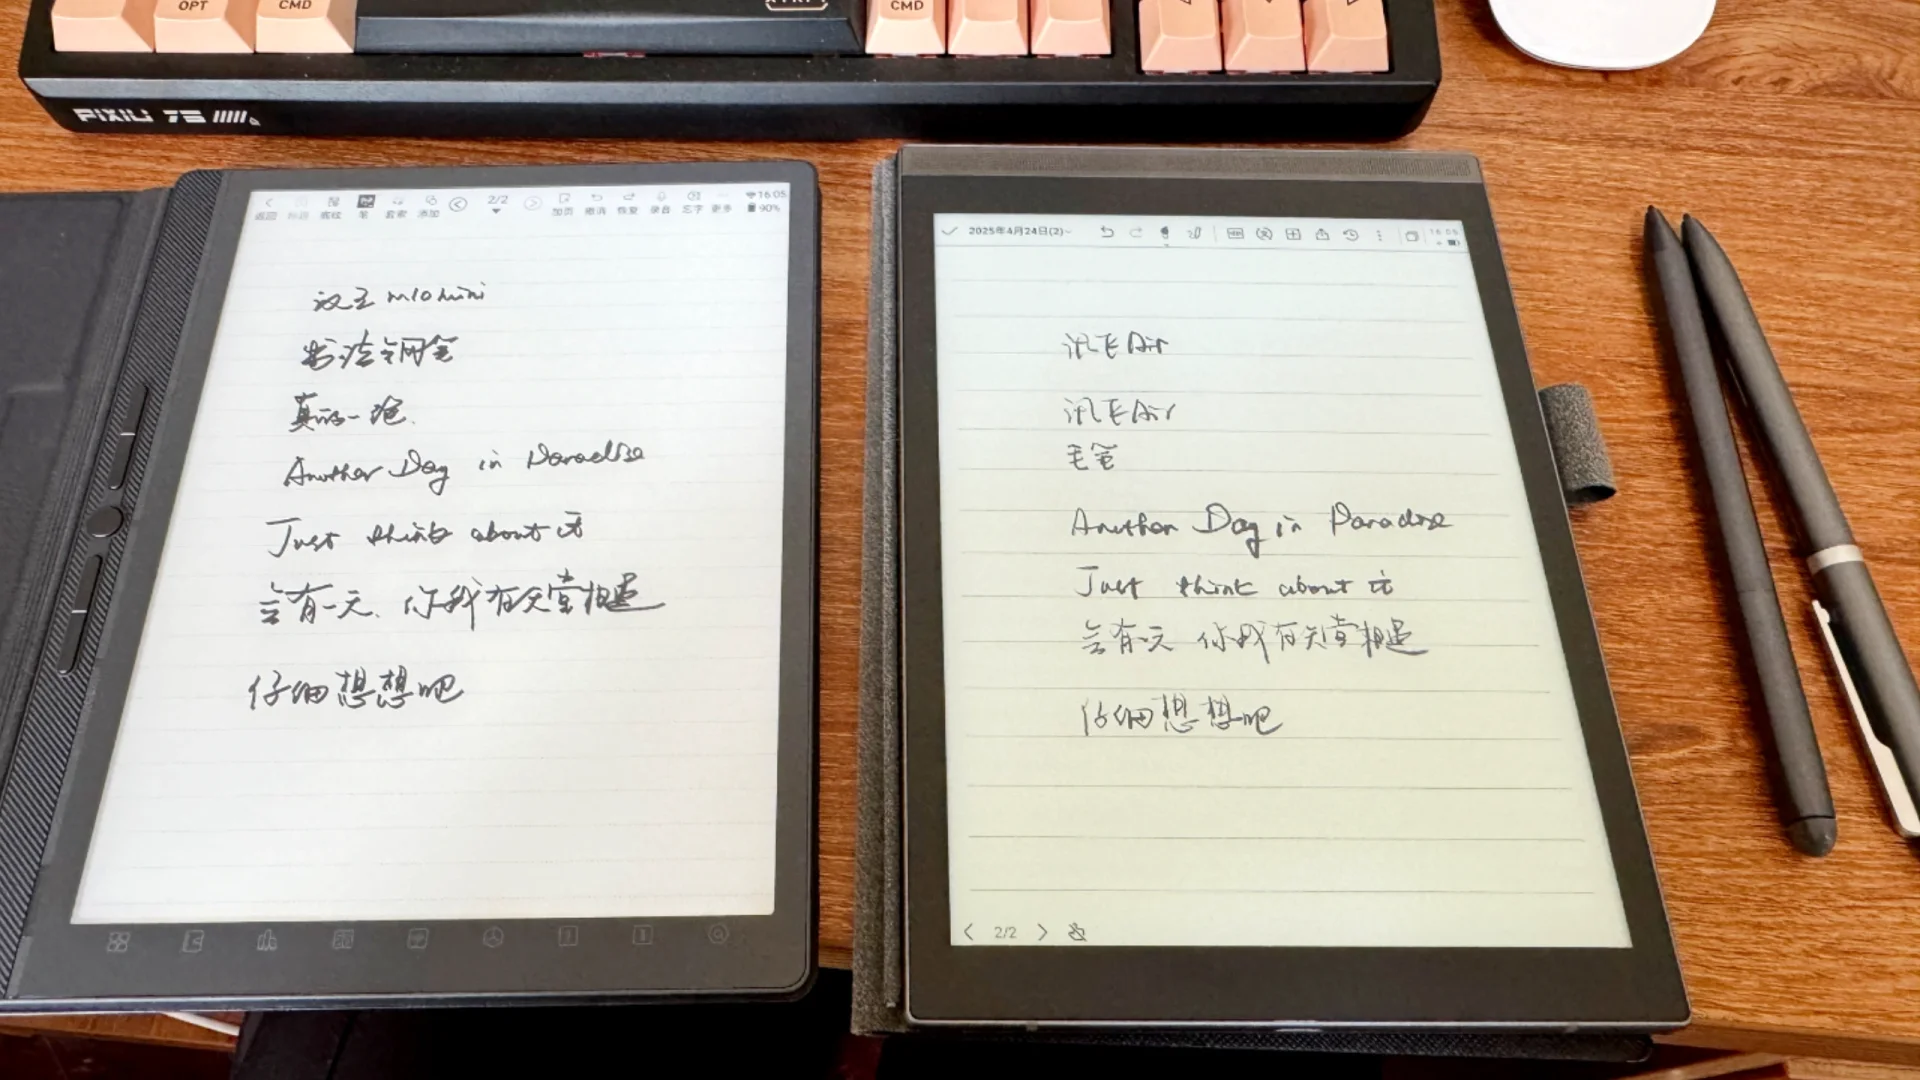 OPT
CMD
CMD
PIXILI 75
2/2
16:05
返回 标题 模板 笔 套索 添加 加页 撤消 恢复 录音 忘字 更多 90%
汉王 M10 mini
书法钢笔
真的一绝.
Another Day in Paradise
Just think about it
会有一天、你我在天堂相遇
仔细想想吧
2025年4月24日(2)
16:05
讯飞 Air
讯飞 Air
毛笔
Another Day in Paradise
Just think about it
会有一天 你我在天堂相遇
仔细想想吧
2/2